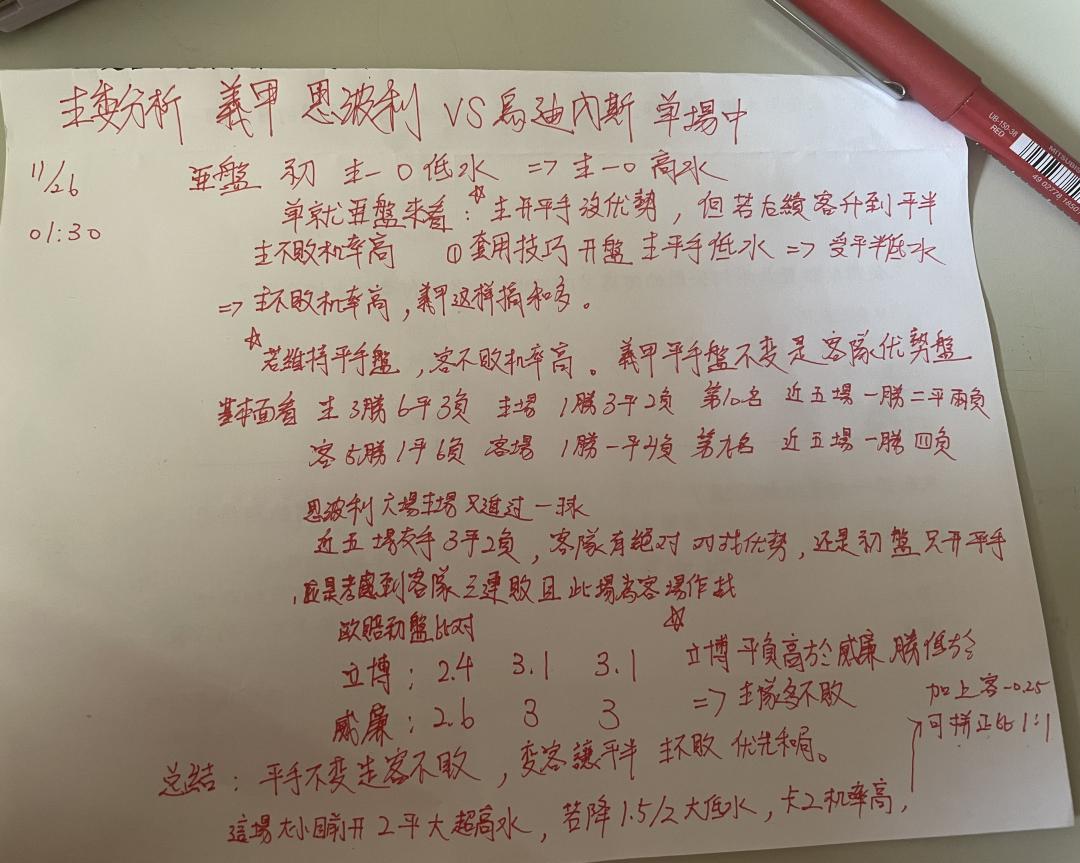 主委分析 義甲 恩波利 VS 烏迪內斯 单場中
11/26
01:30
亚盤 初 主-0 低水 => 主-0 高水
单就亚盤來看：☆主开平手没优勢，但若后續客升到平半
主不敗机率高 ① 套用技巧 开盤 主平手低水 => 受平半低水
=> 主不敗机率高，義甲这样搞和多。
☆若維持平手盤，客不敗机率高。義甲平手盤不变是客隊优勢盤
基本面看 主3勝6平3負 主場 1勝3平2負 第10名 近五場一勝二平兩負
客5勝1平6負 客場 1勝一平4負 第九名 近五場 一勝四负
恩波利六場主場只進过一球
近五場交手3平2負，客隊有绝对对战优勢，还是初盤只开平手
，应是考慮到客隊三連敗且此場為客場作战
欧賠初盤比对
立博：2.4 3.1 3.1
☆立博平負高於威廉 勝低於
威廉：2.6 3 3
=> 主隊多不敗
总結：平手不变走客不敗，变客讓平半 主不敗 优先和局。
這場大小目前开2平大超高水，若降1.5/2大低水，卡2机率高，
加上客-0.25
可拼正比1:1
UB-150-38
RED
MITSUBISHI
49 02778 18501